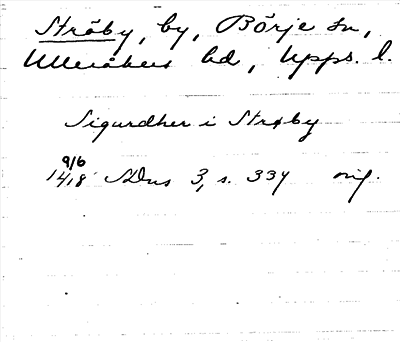 Ströby, by, Börje sn,
Ulleråkers hd, Upps. l.
Sigurdher i Strøby
9/6
1418 SDns 3, s. 334 orig.